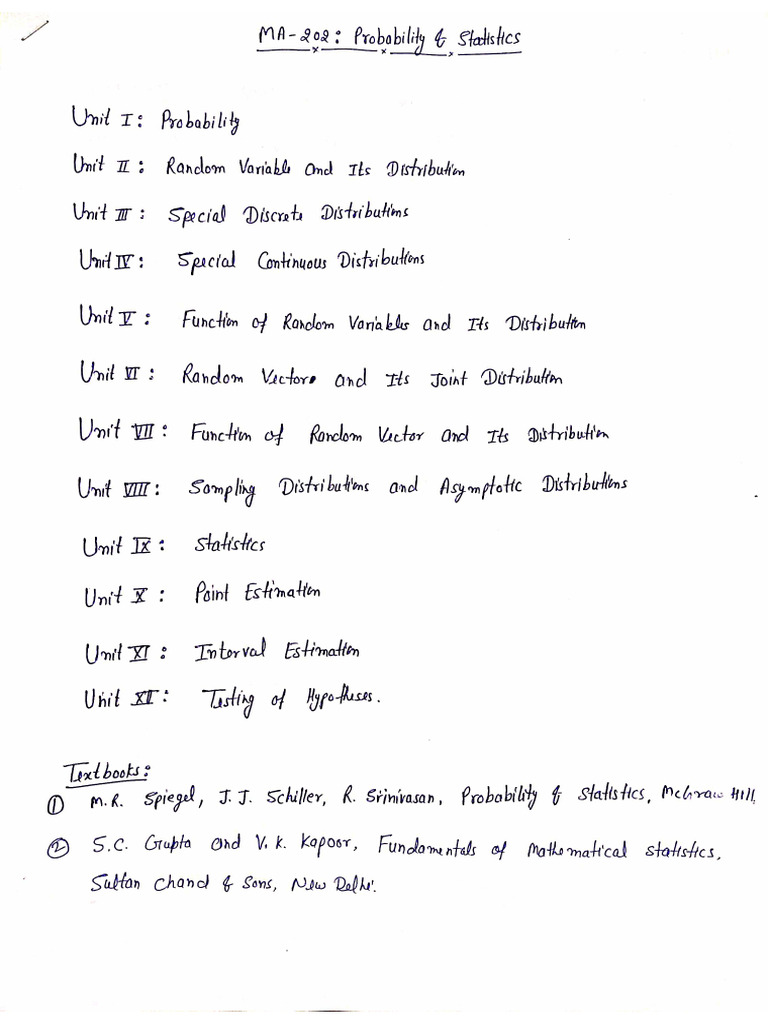 MA-202: Probability & Statistics
Unit I: Probability
Unit II: Random Variable and Its Distribution
Unit III: Special Discrete Distributions
Unit IV: Special Continuous Distributions
Unit V: Function of Random Variables and Its Distribution
Unit VI: Random Vector and Its Joint Distribution
Unit VII: Function of Random Vector and Its Distribution
Unit VIII: Sampling Distributions and Asymptotic Distributions
Unit IX: Statistics
Unit X: Point Estimation
Unit XI: Interval Estimation
Unit XII: Testing of Hypotheses.
Textbooks:
① M.R. Spiegel, J.J. Schiller, R. Srinivasan, Probability & Statistics, McGraw Hill,
② S.C. Gupta and V.K. Kapoor, Fundamentals of Mathematical Statistics,
Sultan Chand & Sons, New Delhi.